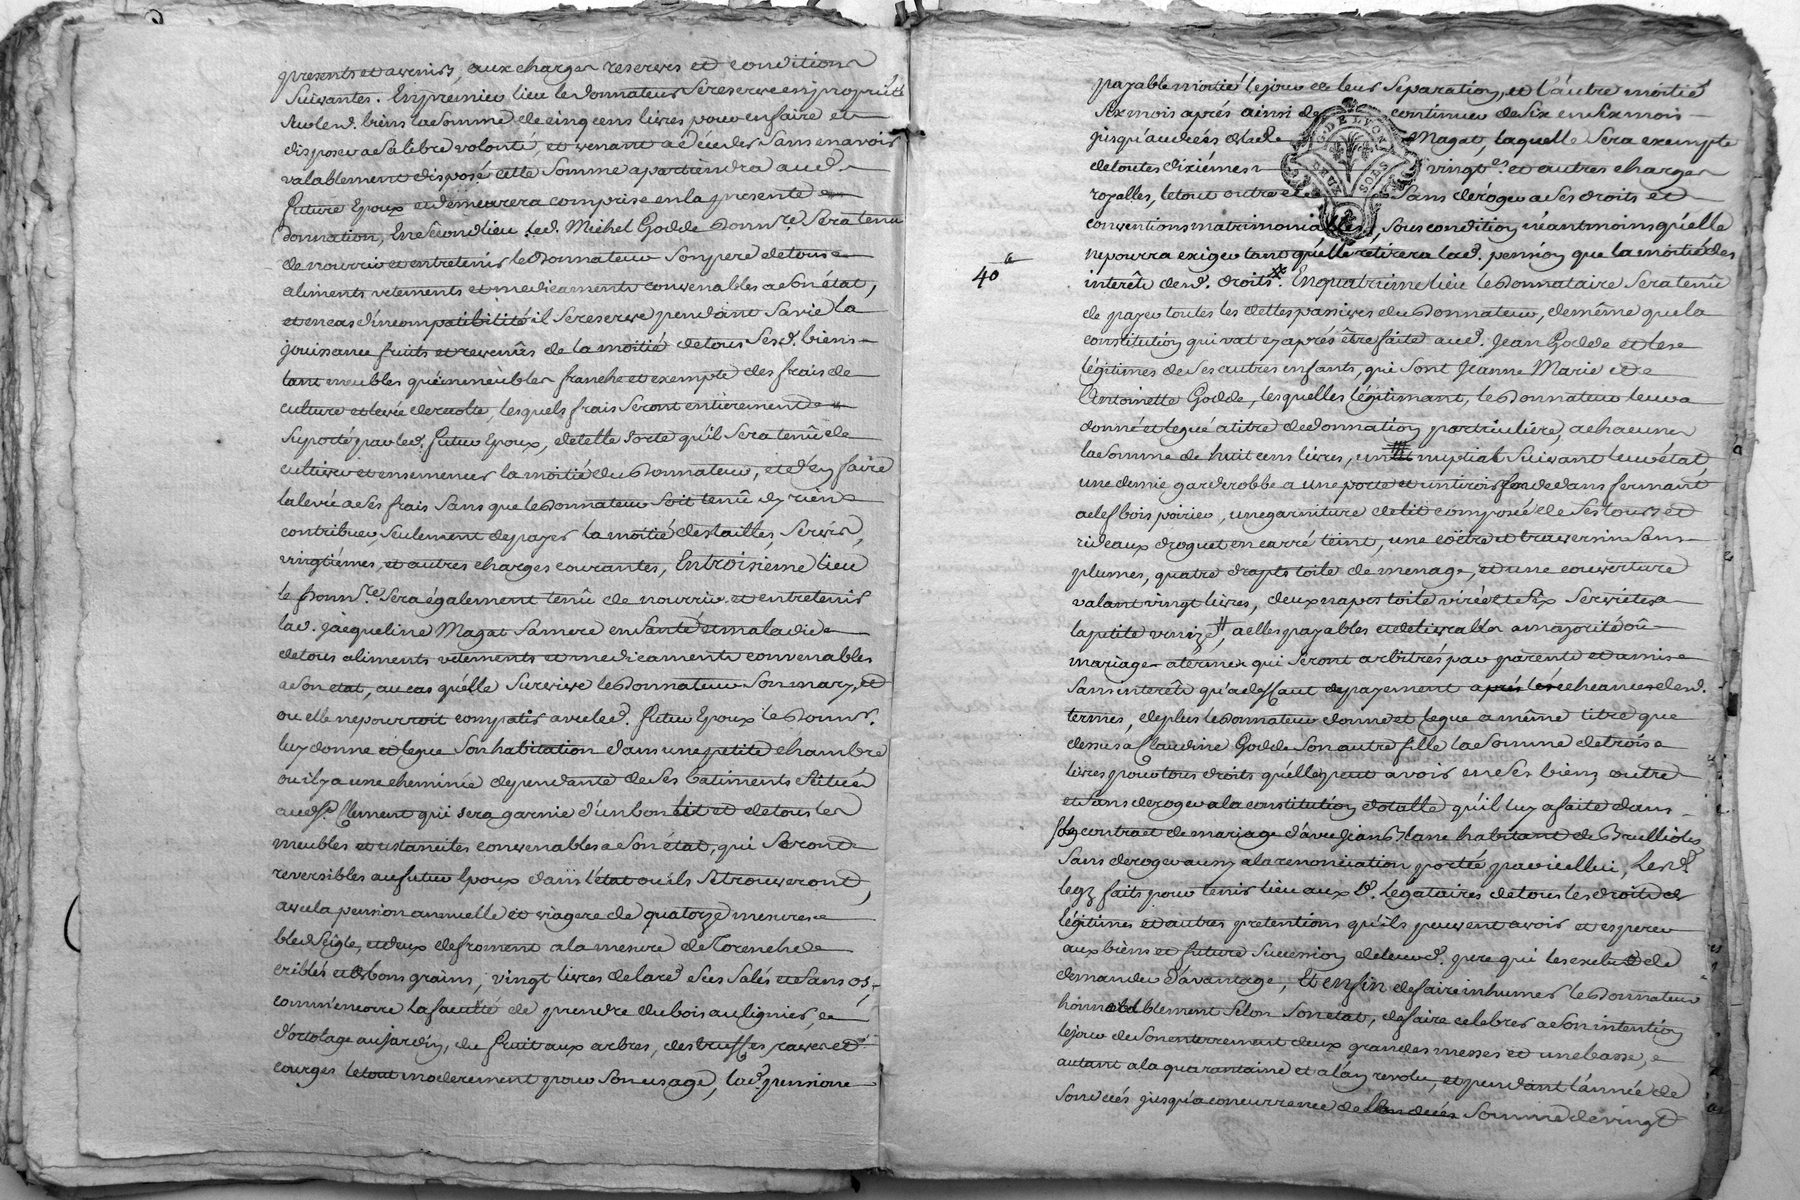 presents et avenirs, aux charges reserves et conditions
suivantes. En premier lieu le donnateur se reserve en propriété
sur lesd. biens la somme de cinq cens livres pour en faire et
disposer a sa libre volonté, et venant a déceder sans en avoir
valablement disposé cette somme apartiendra aud.
futur Epoux et demeurera comprise en la presente
donnation, En second lieu led. Michel Godde donnre. sera tenu
de nourrir et entretenir le donnateur son pere de tous
aliments vetements et medicaments convenables a son état,
et en cas d'incompatibilité il se reserve pendant sa vie la
jouissance fruits et revenûs de la moitié de tous sesd. biens
tant meubles qu'immeubles franche et exempte des frais de
culture et levée de recolte, lesquels frais seront entierement
suporté par led. futur Epoux, de telle sorte qu'il sera tenû de
cultiver et ensemencer la moitié du donnateur, et d'en faire
la levée a ses frais sans que le donnateur soit tenû d'y rien
contribuer, seulement de payer la moitié des tailles, servis,
vingtiémes, et autres charges courantes, En troisieme lieu
le donnre. sera également tenû de nourrir et entretenir
lad. jacqueline Magat sa mere en santé et maladie
de tous aliments vetements et medicaments convenables
a son etat, au cas qu'elle survive le donnateur son mary, et
ou elle ne pourroit compatir avec led. futur Epoux le donnr.
luy donne et legue son habitation dans une petite chambre
ou il y a une cheminée dependante de ses batiments situés
aud. Clement qui sera garnie d'un bon lit et de tous les
meubles et ustancites convenables a son état, qui seront
reversibles au futur Epoux dans l'état ou ils se trouveront,
avec la pension annuelle et viagere de quatorze mesures
bled seigle, et deux de froment a la mesure de Torenche
criblés et bons grains, vingt livres de lard sec salés et sans os,
comm'encore la faculté de prendre du bois au lignier, de
d'ortolage au jardin, du fruit aux arbres, des truffes, raves et
courges le tout moderement pour son usage, lad. pension
payable moitié le jour de leur separation, et l'autre moitié
six mois aprés ainsi de continuer de six en six mois
jusqu'au decés de lad. Magat, laquelle sera exempte
de toutes dixiémes vingts. et autres charges
royalles, le tout outre et sans déroger a ses droits et
conventions matrimonialles, sous condition néantmoins qu'elle
ne pourra exiger tant qu'elle retirera lad. pension que la moitié des
40
interêts desd. droits. En quatrieme lieu le donnataire sera tenû
de payer toutes les dettes passives du donnateur, de même que la
constitution qui vat cy aprés être faite aud. Jean Godde et les
légitimes de ses autres enfants, qui sont Jeanne Marie et
Antoinette Godde, lesquelles légitimant, le donnateur leur a
donné et legué a titre de donnation particuliére, a chacune
la somme de huit cens livres, un nuptial suivant leur état,
une demie garderobbe a une porte et un tiroir dedans fermant
a clef bois poirier, une garniture de lit composée de ses tours et
rideaux droguet en carré teint, une coëtre et traversin sans
plumes, quatre drapts toile de menage, et une couverture
valant vingt livres, deux napes toile virée et six serviettes
la petite venize, a elles payables et delivrables a majorité ou
mariage a termes qui seront arbitrés par parents et amis
sans interêts qu'a deffaut de payement aprés les echeances desd.
termes, de plus le donnateur donne et legue a même titre que
dessus a Claudine Godde son autre fille la somme de trois
livres pour tous droits qu'elle peut avoir en ses biens outre
et sans deroger a la constitution dotalle qu'il luy a faite dans
son contract de mariage d'avec jean habitant de Brullioles
sans deroger aussy a la renonciation portée par icelluy, Lesd.
legz faits pour tenir lieu aux d. legataires de tous les droits de
légitimes et autres pretentions qu'ils peuvent avoir et esperer
aux biens et future succession de leurd. pere qui les exclud de
demander d'avantage, Et enfin de faire inhumer le donnateur
honnorablement selon son etat, de faire celebrer a son intention
le jour de son enterrement deux grandes messes et une basse,
autant a la quarantaine et a l'an revolu, et pendant l'année de
son decés jusqu'a concurrence de la somme de vingt